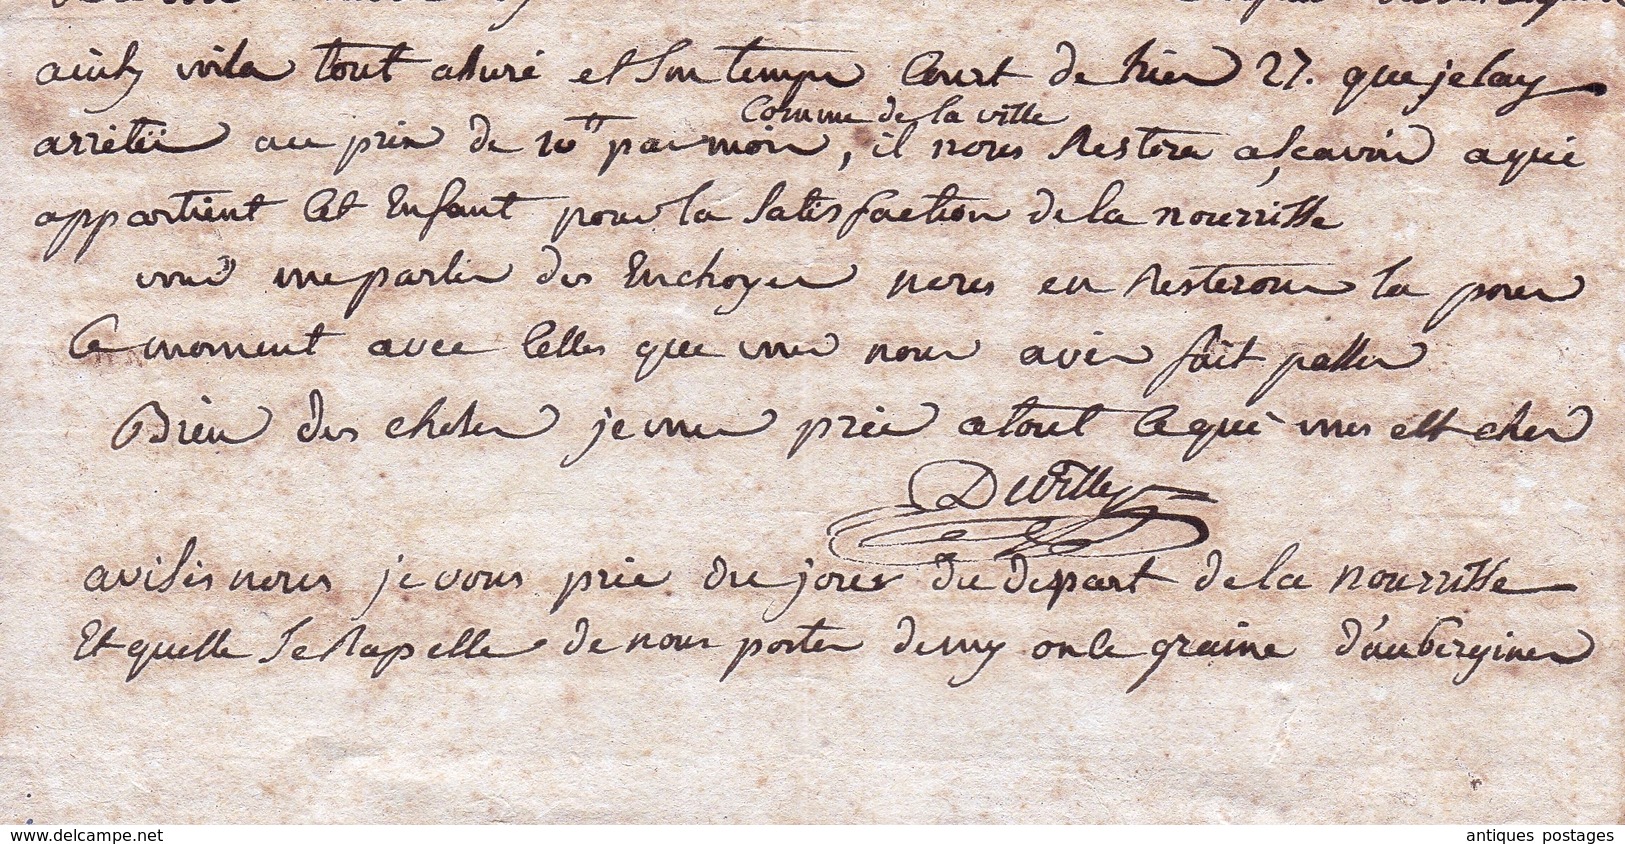 ainsy voila tout assuré et son temps Court de hier 27. que je lay
Comme de la ville
arrêtée au prix de 10tt par mois, il nous Restera a scavoir a quié
appartient Cet Enfant pour la satisfaction de la nourrisse
vous me parlier des nous en Resteront la pour
Ce moment avec Celles que vous nous aves fait passer
Bien des choses je vous prie a tout Ce qui vous est cher
Devilley
avises nous je vous prie du jour du depart de la nourrisse
Et quelle se Rapelle de nous porter demy once graine d'auberginer
www.delcampe.net
antiques postages